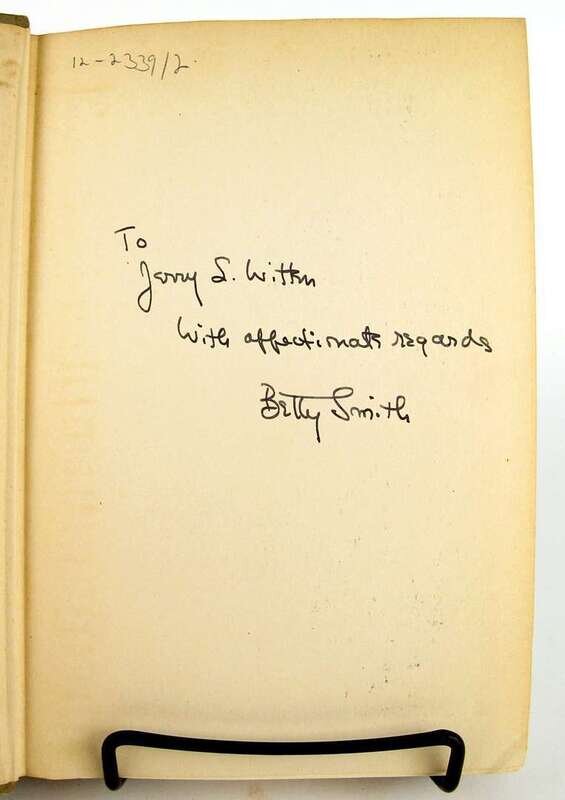 12-2339/2.
To
Jerry S. Witten
With affectionate regards
Betty Smith